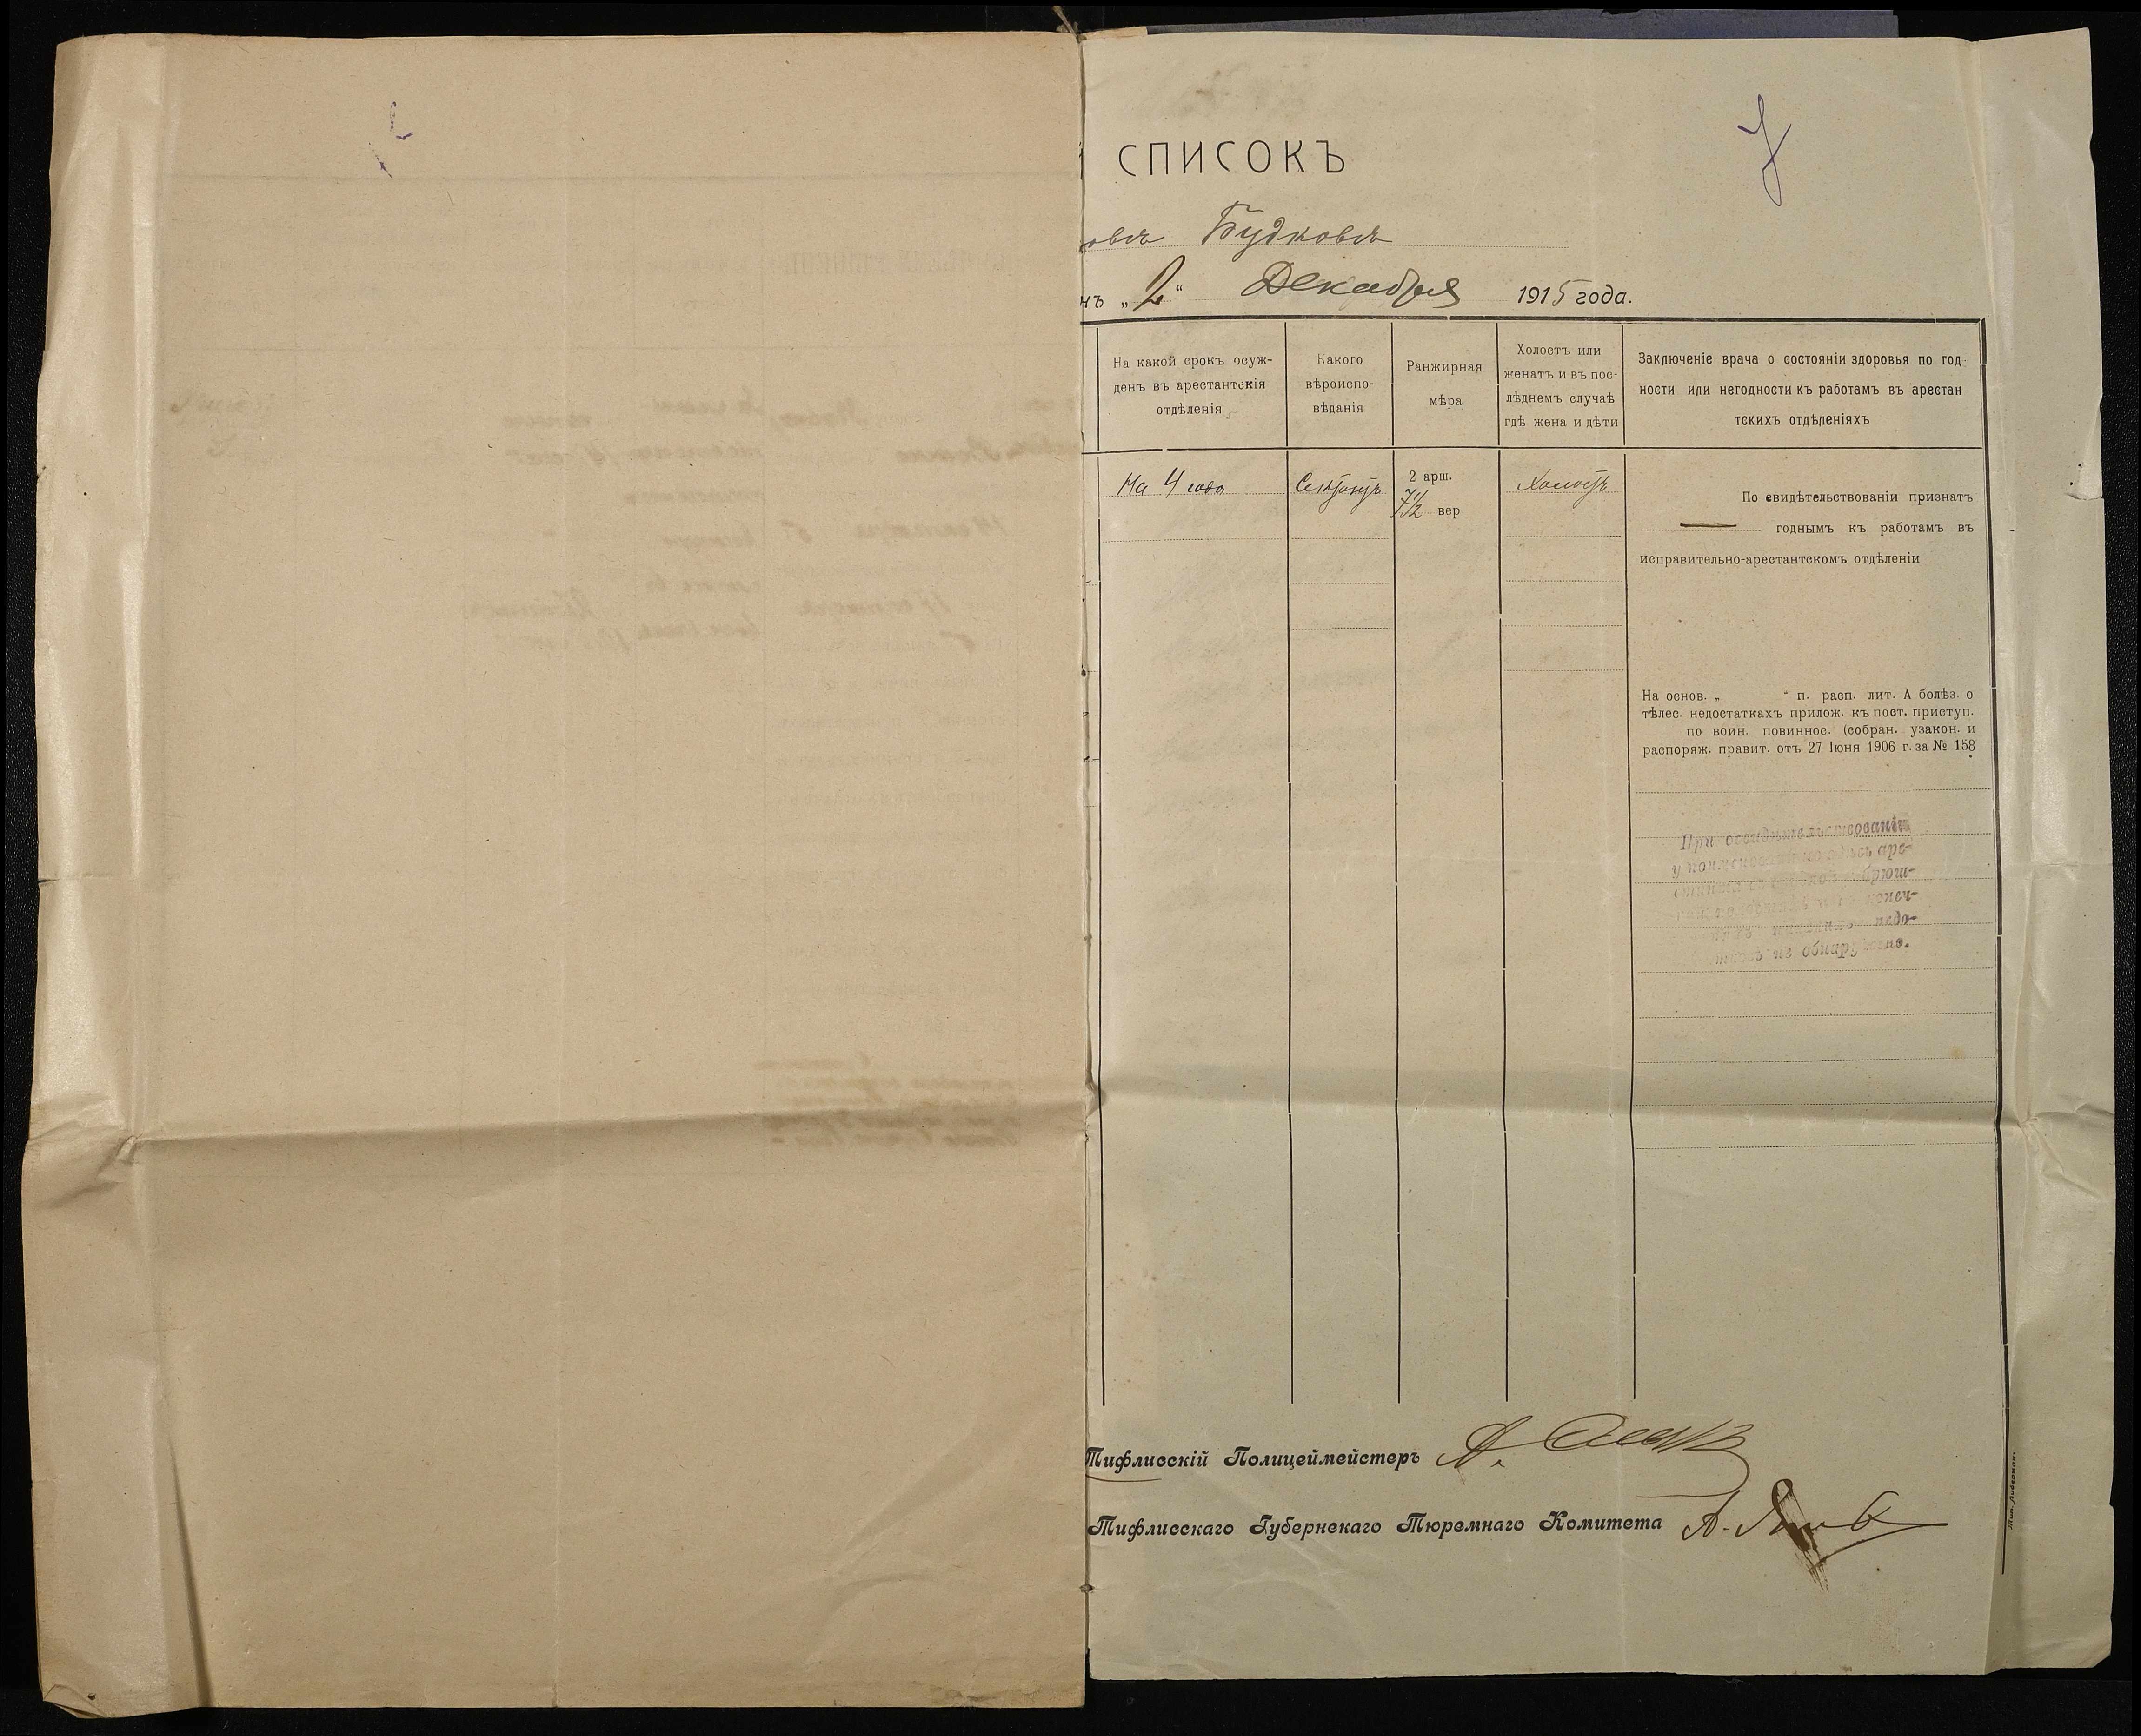 СПИСОКЪ
овъ Будковъ
нъ „2“ Декабря 1915 года.
На какой срокъ осуж-
денъ въ арестантскія
отдѣленія
Какого
вѣроиспо-
вѣданія
Ранжирная
мѣра
Холостъ или
женатъ и въ пос-
лѣднемъ случаѣ
гдѣ жена и дѣти
Заключеніе врача о состояніи здоровья по год-
ности или негодности къ работамъ въ арестан
тскихъ отдѣленіяхъ
На 4 года
Сектантъ
2 арш.
7 1/2 вер
Холостъ
По свидѣтельствованіи признатъ
годнымъ къ работамъ въ
исправительно-арестантскомъ отдѣленіи
На основ. „ “ п. расп. лит. А болѣз. о
тѣлес. недостаткахъ прилож. къ пост. приступ.
по воин. повиннос. (собран. узакон. и
распоряж. правит. отъ 27 Іюня 1906 г. за № 158
При освидѣтельствованіи
у арес-
брюш-
конеч-
недо-
не обнаружено.
Тифлисскій Полицеймейстеръ А.
Тифлисскаго Губернскаго Тюремнаго Комитета А.